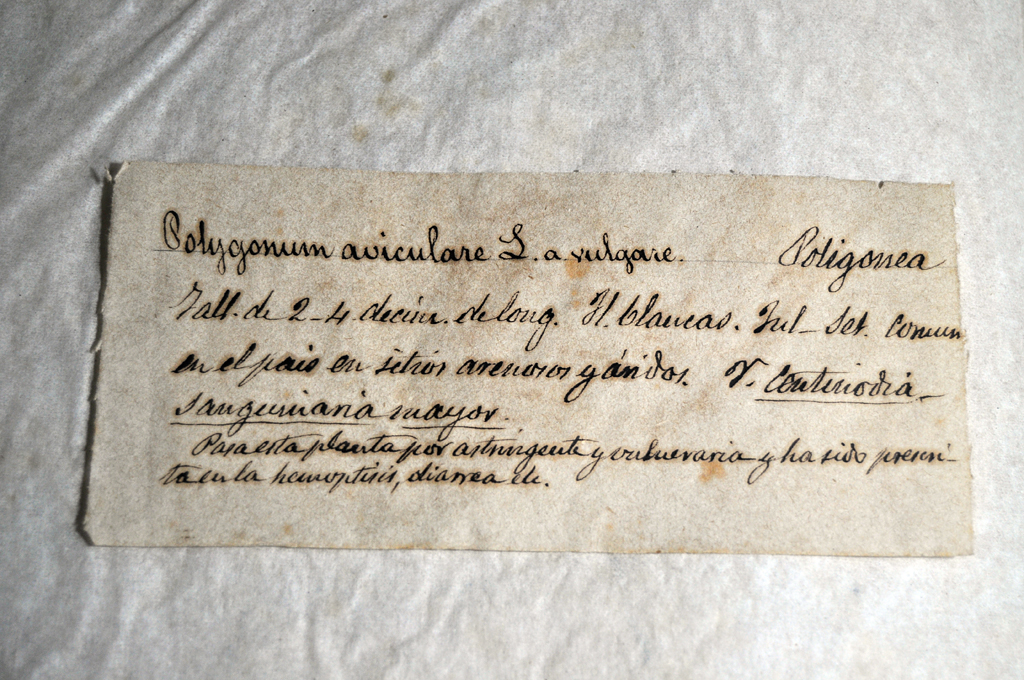 Polygonum aviculare L. a vulgare. Poligonea
Tall. de 2-4 decim. de long. Fl. blancas. Jul-Set. Comun
en el pais en sitios arenosos y áridos. V. Centinodia-
sanguinaria mayor.
Pasa esta planta por astringente y vulneraria y ha sido prescri-
ta en la hemoptisis, diarrea etc.